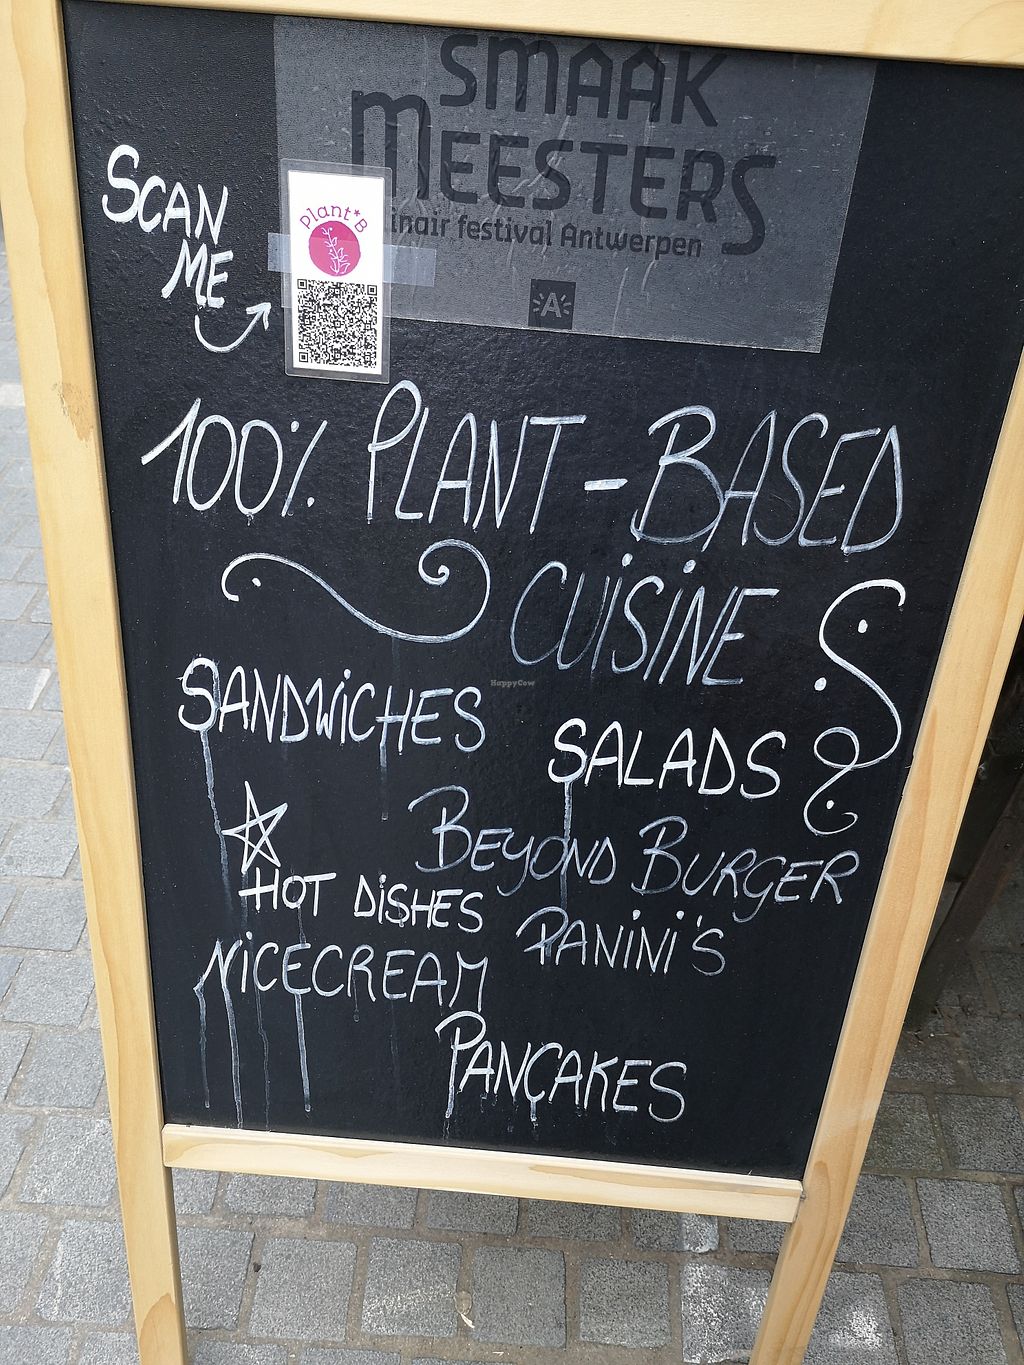 SMAAK
MEESTERS
inair festival Antwerpen
A
SCAN
ME
Plant*B
100% PLANT-BASED
CUISINE
HappyCow
SANDWICHES
SALADS
BEYOND BURGER
HOT DISHES
PANINI'S
NICECREAM
PANCAKES